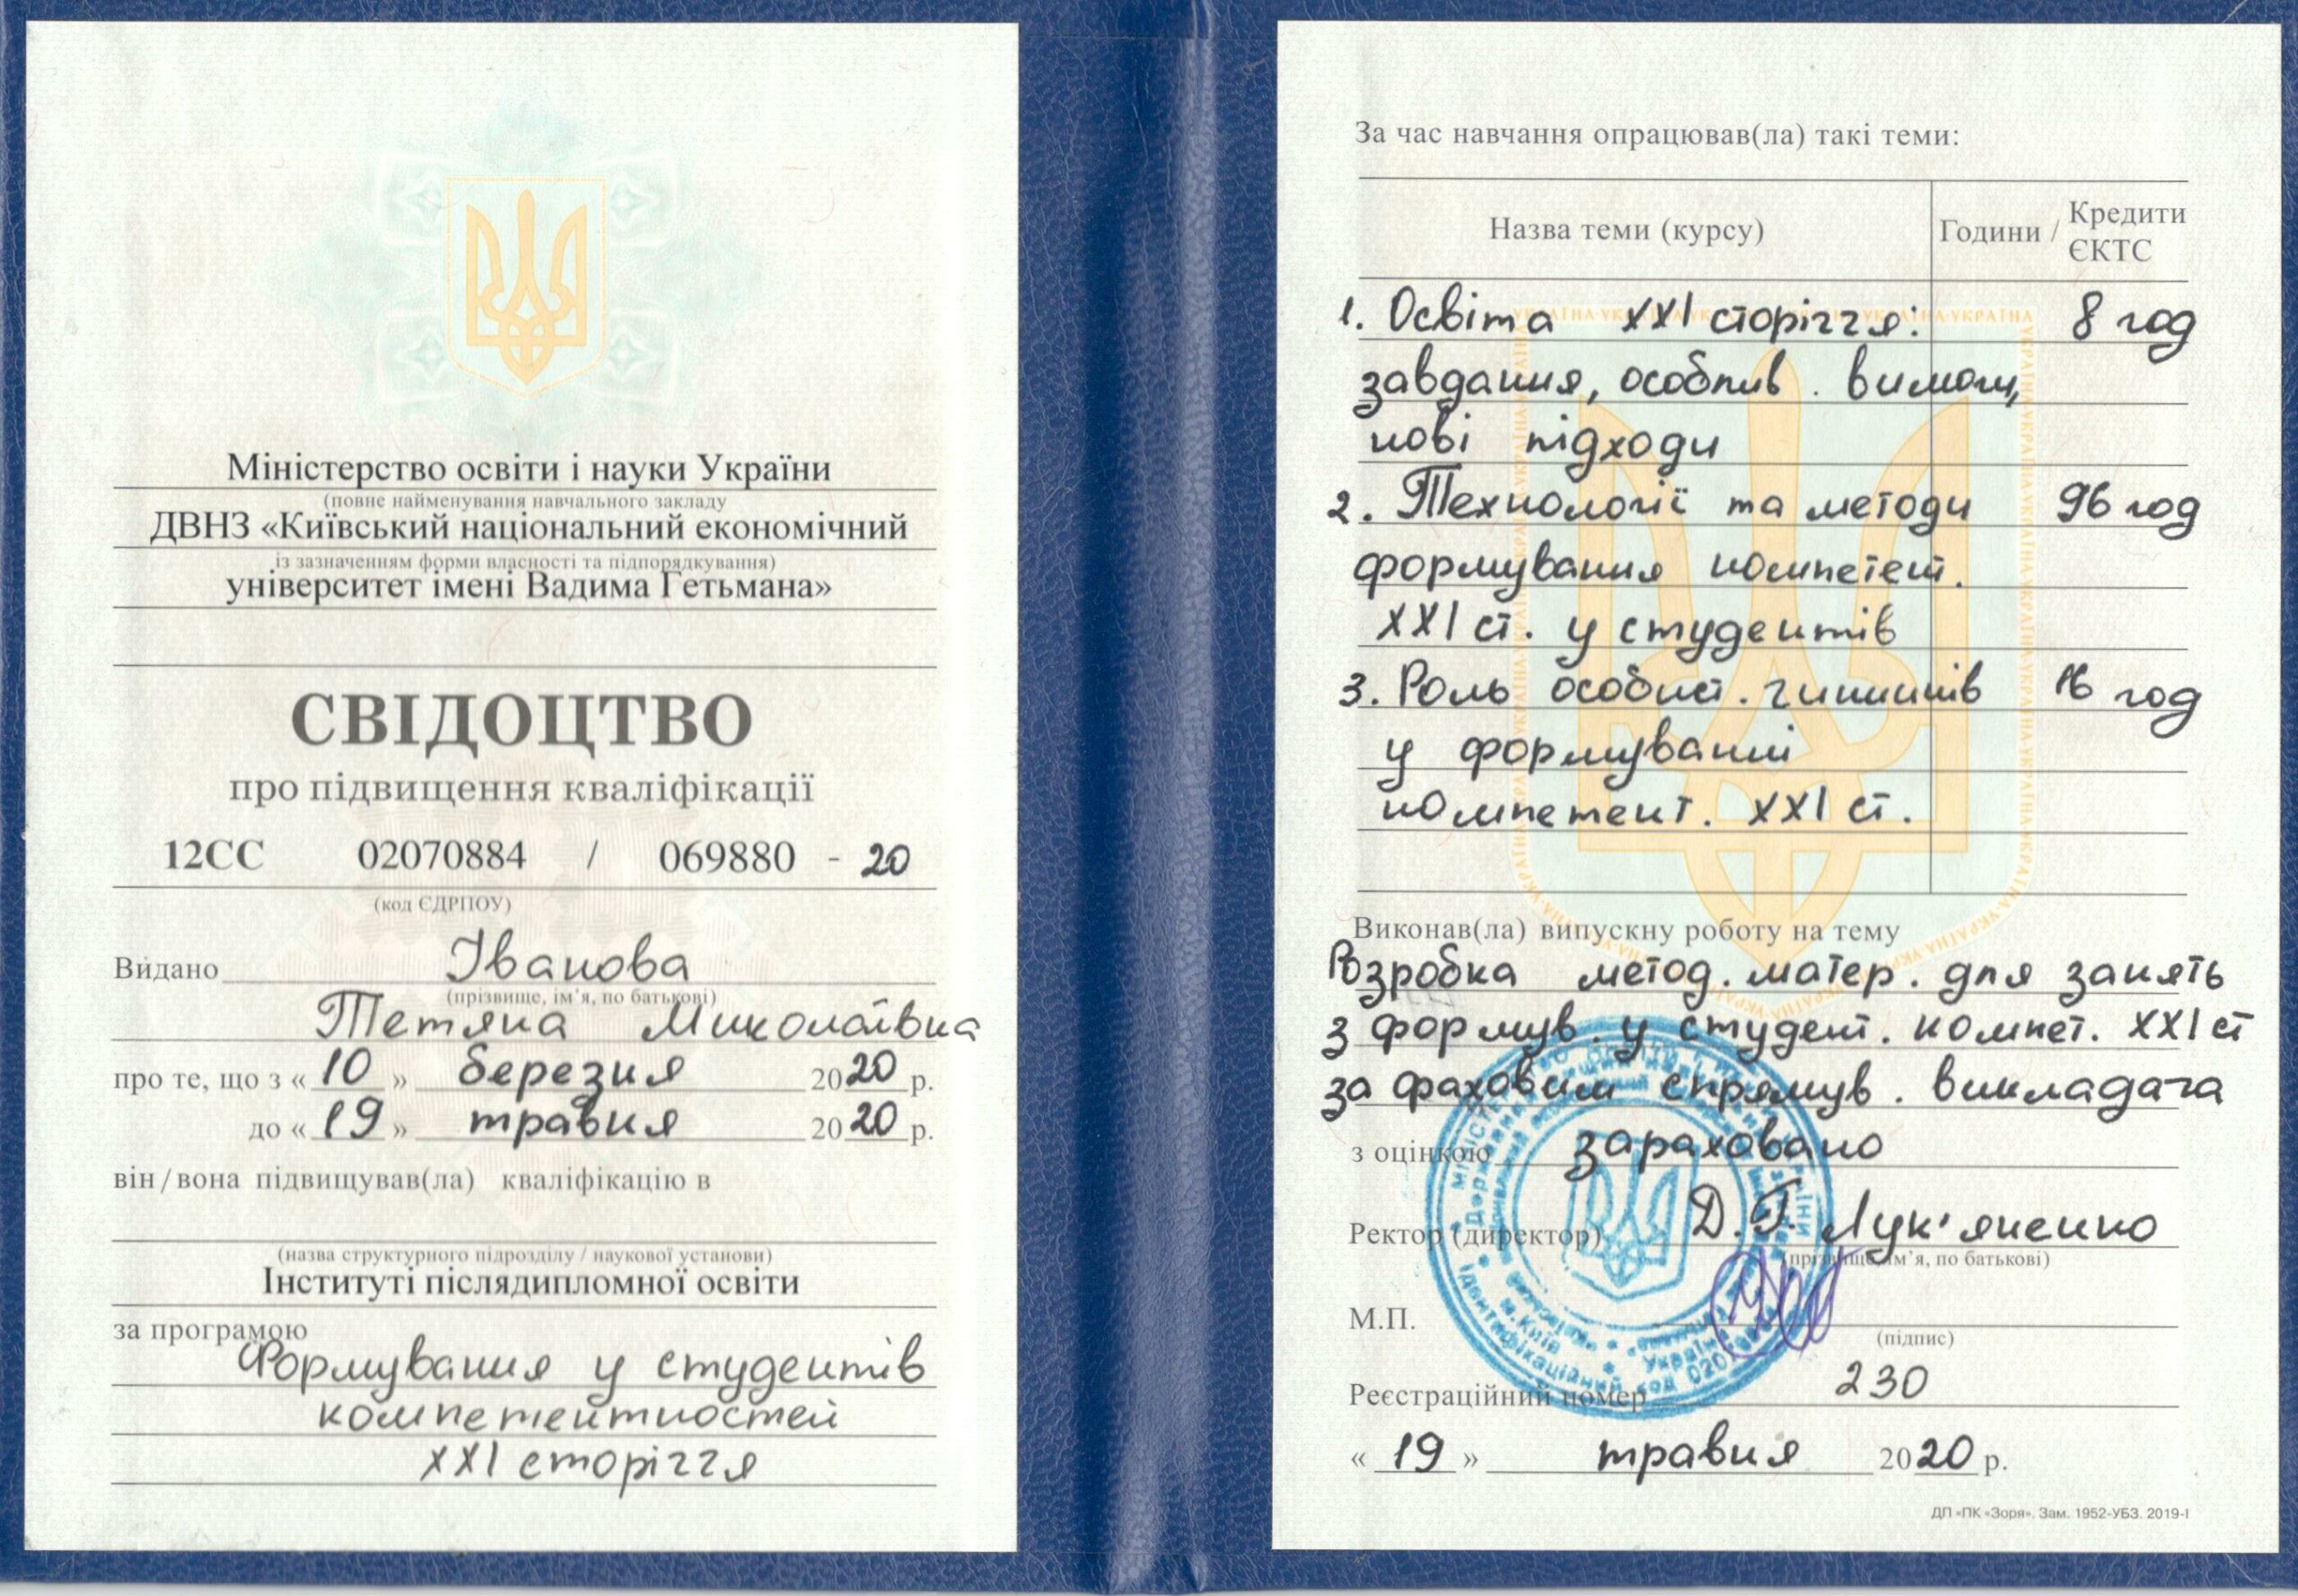 Міністерство освіти і науки України
(повне найменування навчального закладу
ДВНЗ «Київський національний економічний
із зазначенням форми власності та підпорядкування)
університет імені Вадима Гетьмана»
СВІДОЦТВО
про підвищення кваліфікації
12СС 02070884 / 069880 - 20
(код ЄДРПОУ)
Видано Іванова
(прізвище, ім’я, по батькові)
Тетяна Миколаївна
про те, що з « 10 » березня 2020 р.
до « 19 » травня 2020 р.
він / вона підвищував(ла) кваліфікацію в
(назва структурного підрозділу / наукової установи)
Інституті післядипломної освіти
за програмою
Формування у студентів
компетентностей
ХХІ сторіччя
За час навчання опрацював(ла) такі теми:
Назва теми (курсу) Години / Кредити ЄКТС
1. Освіта ХХІ сторіччя: 8 год
завдання, особлив. вимоги,
нові підходи
2. Технології та методи 96 год
формування компетент.
ХХІ ст. у студентів
3. Роль особист. чинників 16 год
у формуванні
компетент. ХХІ ст.
Виконав(ла) випускну роботу на тему
Розробка метод. матер. для занять
з формув. у студент. компет. ХХІ ст
за фаховим спрямув. викладача
з оцінкою зараховано
Ректор (директор) Д.Г. Лук'яненко
(прізвище, ім’я, по батькові)
М.П.
(підпис)
Реєстраційний номер 230
« 19 » травня 2020 р.
ДП «ПК «Зоря». Зам. 1952-УБЗ. 2019-І